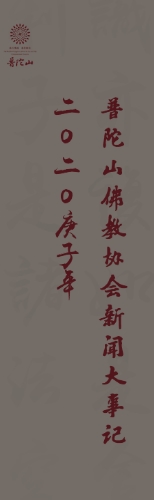 普陀山
普陀山佛教协会新闻大事记
二〇二〇庚子年